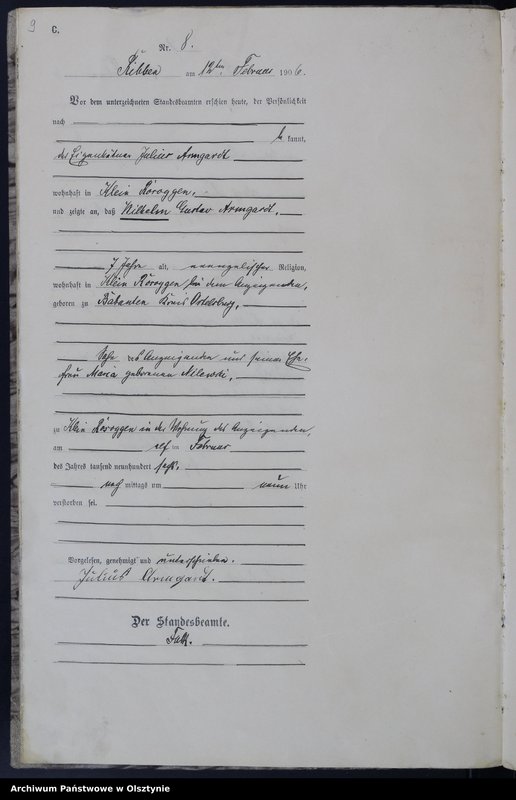 9
C.
Nr. 8.
Ribben am 12ten Februar 1906.
Vor dem unterzeichneten Standesbeamten erschien heute, der Persönlichkeit
nach
be kannt,
der Eigenkätner Julius Armgardt
wohnhaft in Klein Röroggen,
und zeigte an, daß Wilhelm Gustav Armgardt,
7 Jahre alt, evangelischer Religion,
wohnhaft in Klein Röroggen bei dem Anzeigenden,
geboren zu Babanten Kreis Ortelsburg,
Sohn des Anzeigenden und seiner Ehe-
frau Maria geborenen Milewski,
zu Klein Röroggen in der Wohnung des Anzeigenden,
am elften Februar
des Jahres tausend neunhundert sechs,
nach mittags um neun Uhr
verstorben sei.
Vorgelesen, genehmigt und unterschrieben.
Julius Armgardt.
Der Standesbeamte.
Archiwum Państwowe w Olsztynie